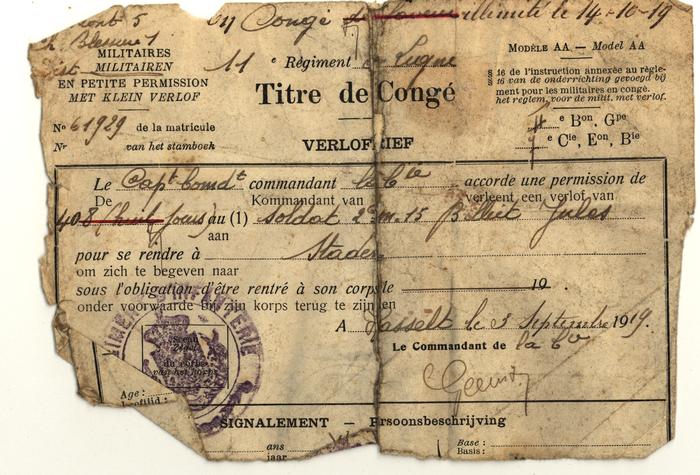 en Congé illimité le 14-10-19
Blessure 1
MILITAIRES
MILITAIREN
EN PETITE PERMISSION
MET KLEIN VERLOF
11 e Régiment de Ligne
Titre de Congé
VERLOFBRIEF
MODÈLE AA — Model AA
§ 16 de l'instruction annexée au règle-
§ 16 van de onderrichting gevoegd bij
ment pour les militaires en congé.
het reglem. voor de milit. met verlof.
4 e Bon, Gpe
e Cie, Eon, Bie
No 61929 de la matricule
Nr van het stamboek
Le Capt comdt commandant la Cie accorde une permission de
De Kommandant van verleent een verlof van
8 (huit jours) au (1) soldat 2 m. 15 Jules
aan
pour se rendre à Staden
om zich te begeven naar
sous l'obligation d'être rentré à son corps le 19 .
onder voorwaarde bij zijn korps terug te zijn den
A Hasselt le 3 Septembre 1919.
Le Commandant de la Cie
INFANTERIE
Sceau
du corps
van het korps
Age:
Leeftijd:
SIGNALEMENT — Persoonsbeschrijving
ans
jaar
Base:
Basis: